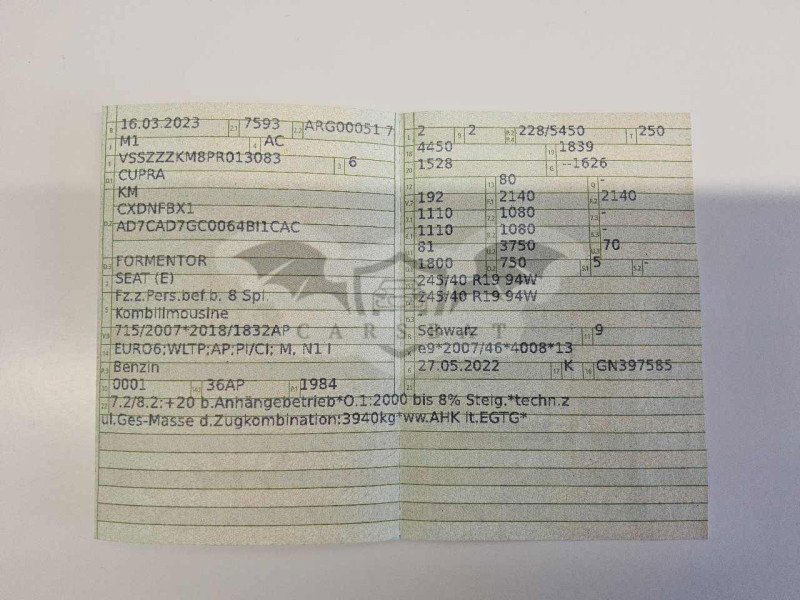 16.03.2023 7593 ARG00051 7
M1 AC
VSSZZZKM8PR013083 6
CUPRA
KM
CXDNFBX1
AD7CAD7GC0064BI1CAC
FORMENTOR
SEAT (E)
Fz.z.Pers.bef.b. 8 Spl.
Kombilimousine
715/2007*2018/1832AP
EURO6;WLTP;AP;PI/CI; M, N1 I
Benzin
0001 36AP 1984
2 2 228/5450 250
4450 1839
1528 --1626
80 -
192 2140 2140
1110 1080 -
1110 1080 -
81 3750 70
1800 750 5 -
245/40 R19 94W
245/40 R19 94W
Schwarz 9
e9*2007/46*4008*13
27.05.2022 K GN397585
7.2/8.2:+20 b.Anhängebetrieb*O.1:2000 bis 8% Steig.*techn.z
ul.Ges-Masse d.Zugkombination:3940kg*ww.AHK lt.EGTG*